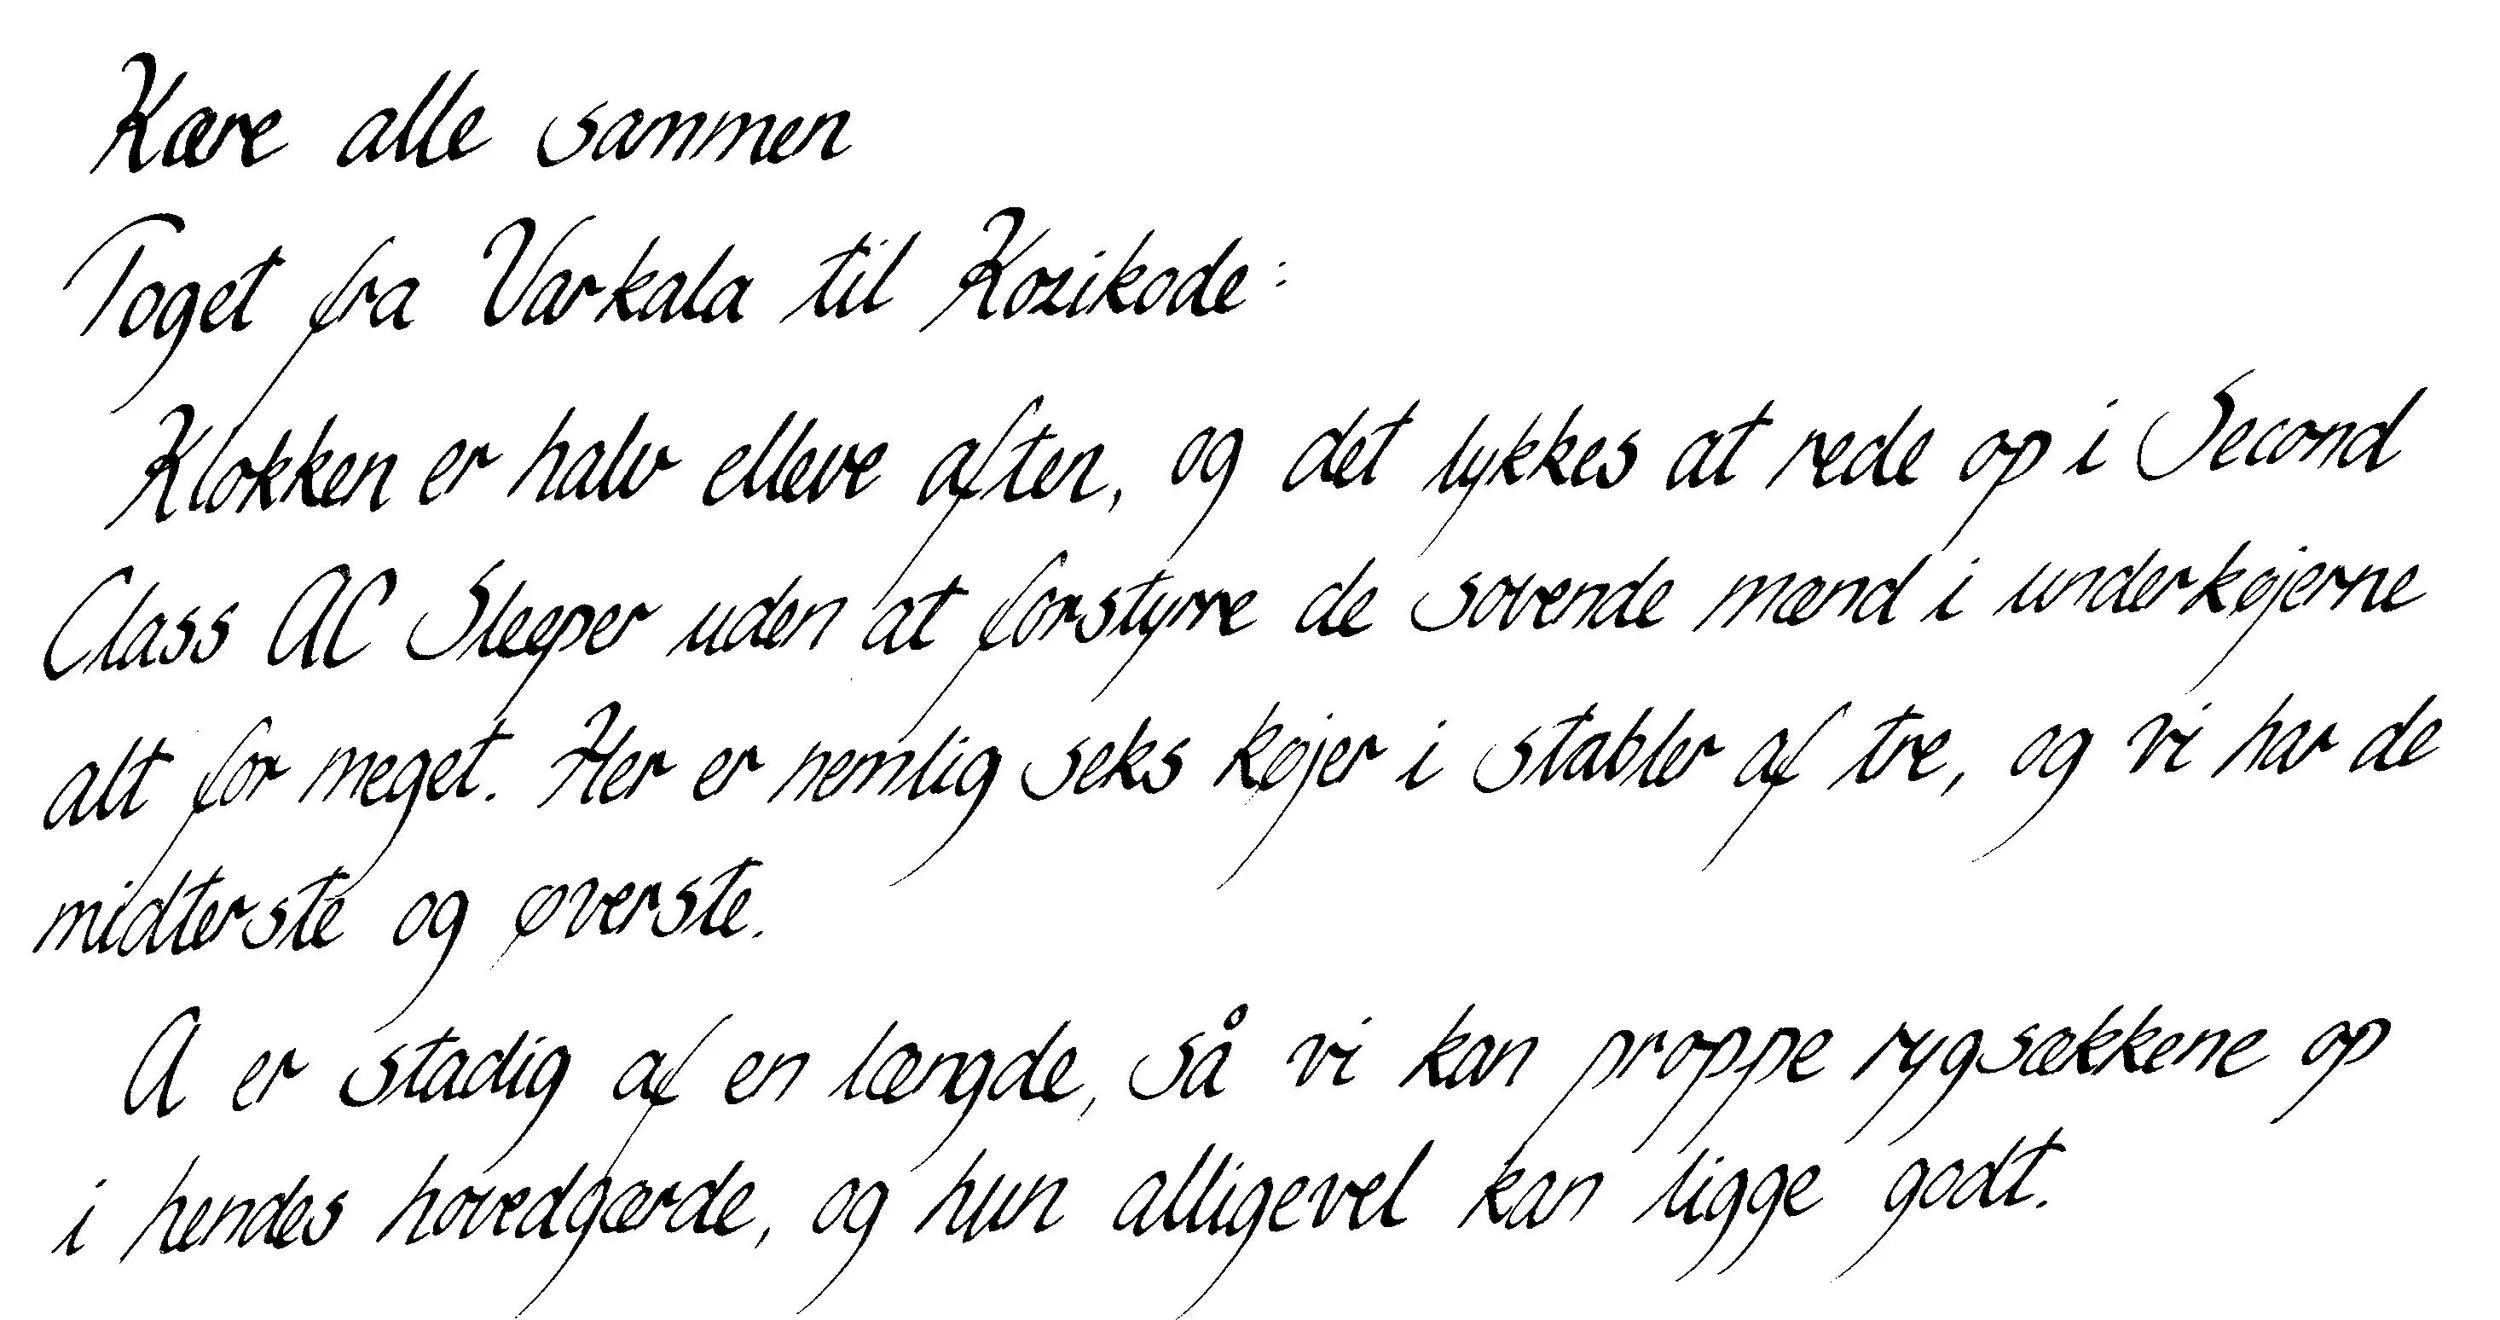 Kære alle sammen
Toget fra Varkala til Kozikode:
Klokken er halv elleve aften, og det lykkes at rede op i Second
Class AC Sleeper uden at forstyrre de sovende mænd i underkøjerne
alt for meget. Her er nemlig seks køjer i stabler af tre, og vi har de
midterste og øverste.
A er stadig af en længde, så vi kan proppe rygsækkene op
i hendes hovedgærde, og hun alligevel kan ligge godt.